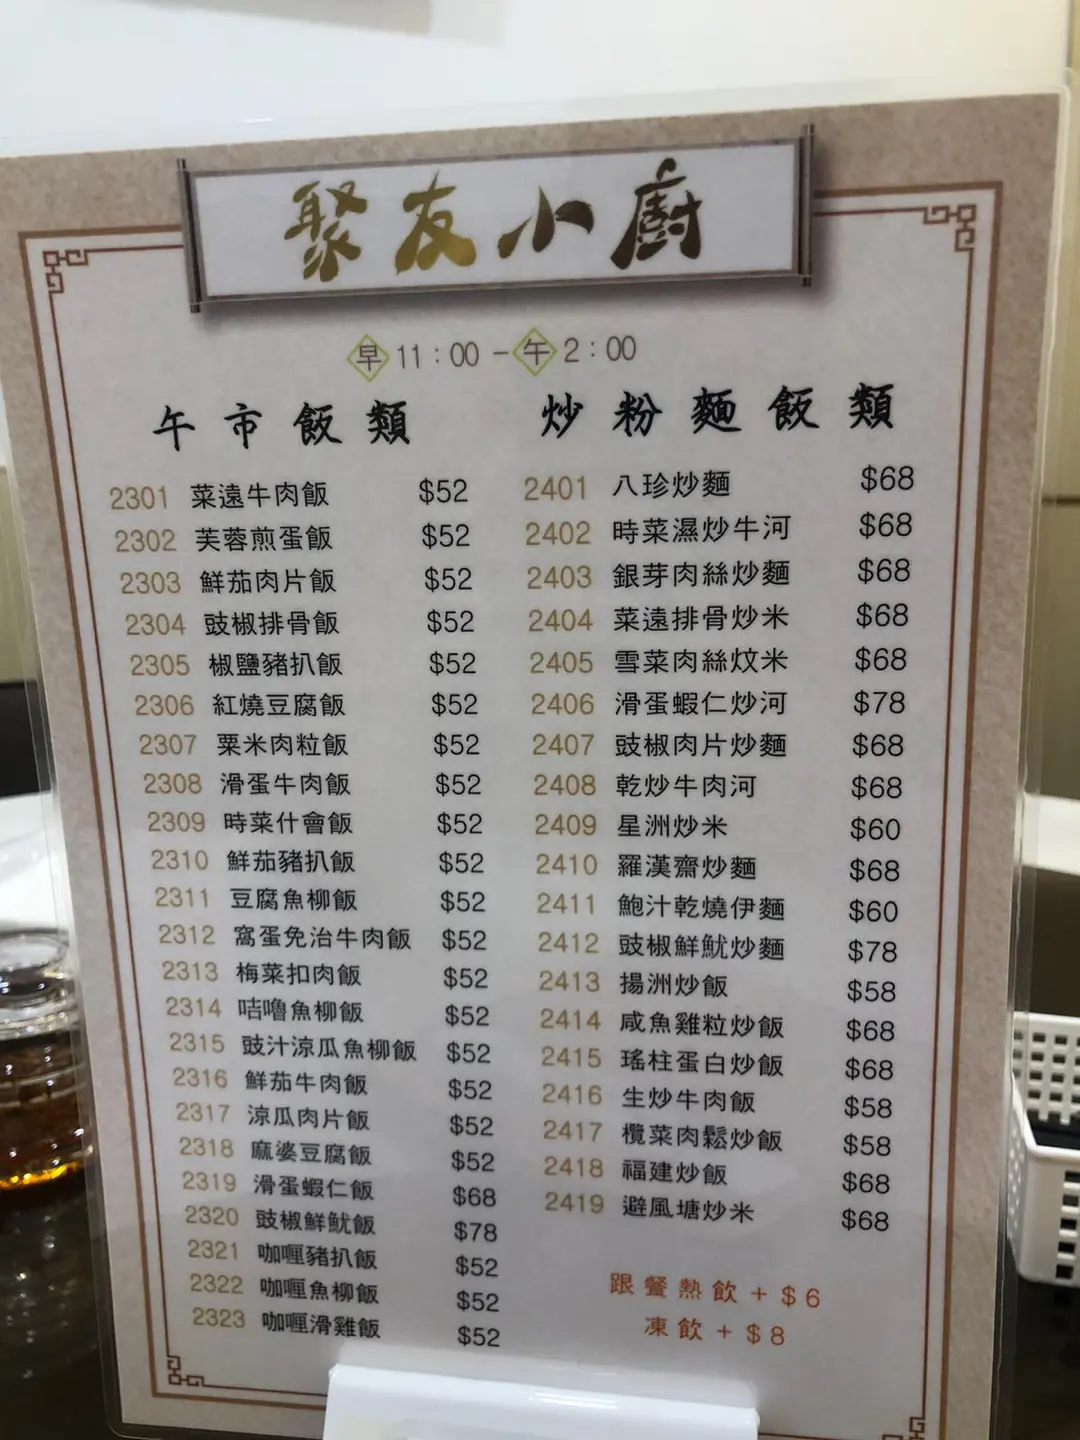 聚友小廚
早 11：00 － 午 2：00
午市飯類
2301 菜遠牛肉飯 $52
2302 芙蓉煎蛋飯 $52
2303 鮮茄肉片飯 $52
2304 豉椒排骨飯 $52
2305 椒鹽豬扒飯 $52
2306 紅燒豆腐飯 $52
2307 粟米肉粒飯 $52
2308 滑蛋牛肉飯 $52
2309 時菜什會飯 $52
2310 鮮茄豬扒飯 $52
2311 豆腐魚柳飯 $52
2312 窩蛋免治牛肉飯 $52
2313 梅菜扣肉飯 $52
2314 咭嚕魚柳飯 $52
2315 豉汁涼瓜魚柳飯 $52
2316 鮮茄牛肉飯 $52
2317 涼瓜肉片飯 $52
2318 麻婆豆腐飯 $52
2319 滑蛋蝦仁飯 $68
2320 豉椒鮮魷飯 $78
2321 咖喱豬扒飯 $52
2322 咖喱魚柳飯 $52
2323 咖喱滑雞飯 $52
炒粉麵飯類
2401 八珍炒麵 $68
2402 時菜濕炒牛河 $68
2403 銀芽肉絲炒麵 $68
2404 菜遠排骨炒米 $68
2405 雪菜肉絲炆米 $68
2406 滑蛋蝦仁炒河 $78
2407 豉椒肉片炒麵 $68
2408 乾炒牛肉河 $68
2409 星洲炒米 $60
2410 羅漢齋炒麵 $68
2411 鮑汁乾燒伊麵 $60
2412 豉椒鮮魷炒麵 $78
2413 揚洲炒飯 $58
2414 咸魚雞粒炒飯 $68
2415 瑤柱蛋白炒飯 $68
2416 生炒牛肉飯 $58
2417 欖菜肉鬆炒飯 $58
2418 福建炒飯 $68
2419 避風塘炒米 $68
跟餐熱飲 + $6
凍飲 + $8